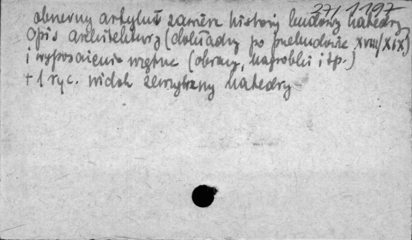 37/1197
obszerny artykuł zawiera historię budowy katedry
opis architektury (dokładny po przebudowie XVIII/XIX)
i wyposażenie wnętrz (obrazy, nagrobki itp.)
+ 1 ryc. widok zewnętrzny katedry